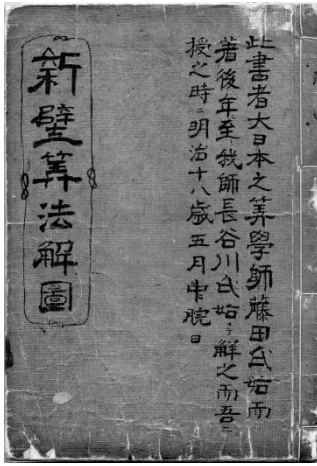 此書者大日本之筭學師藤田氏始而
著後年至我師長谷川氏始ヲ解之而吾ニ
授之時ニ明治十八歳五月中脘日
新壁筭法解圖